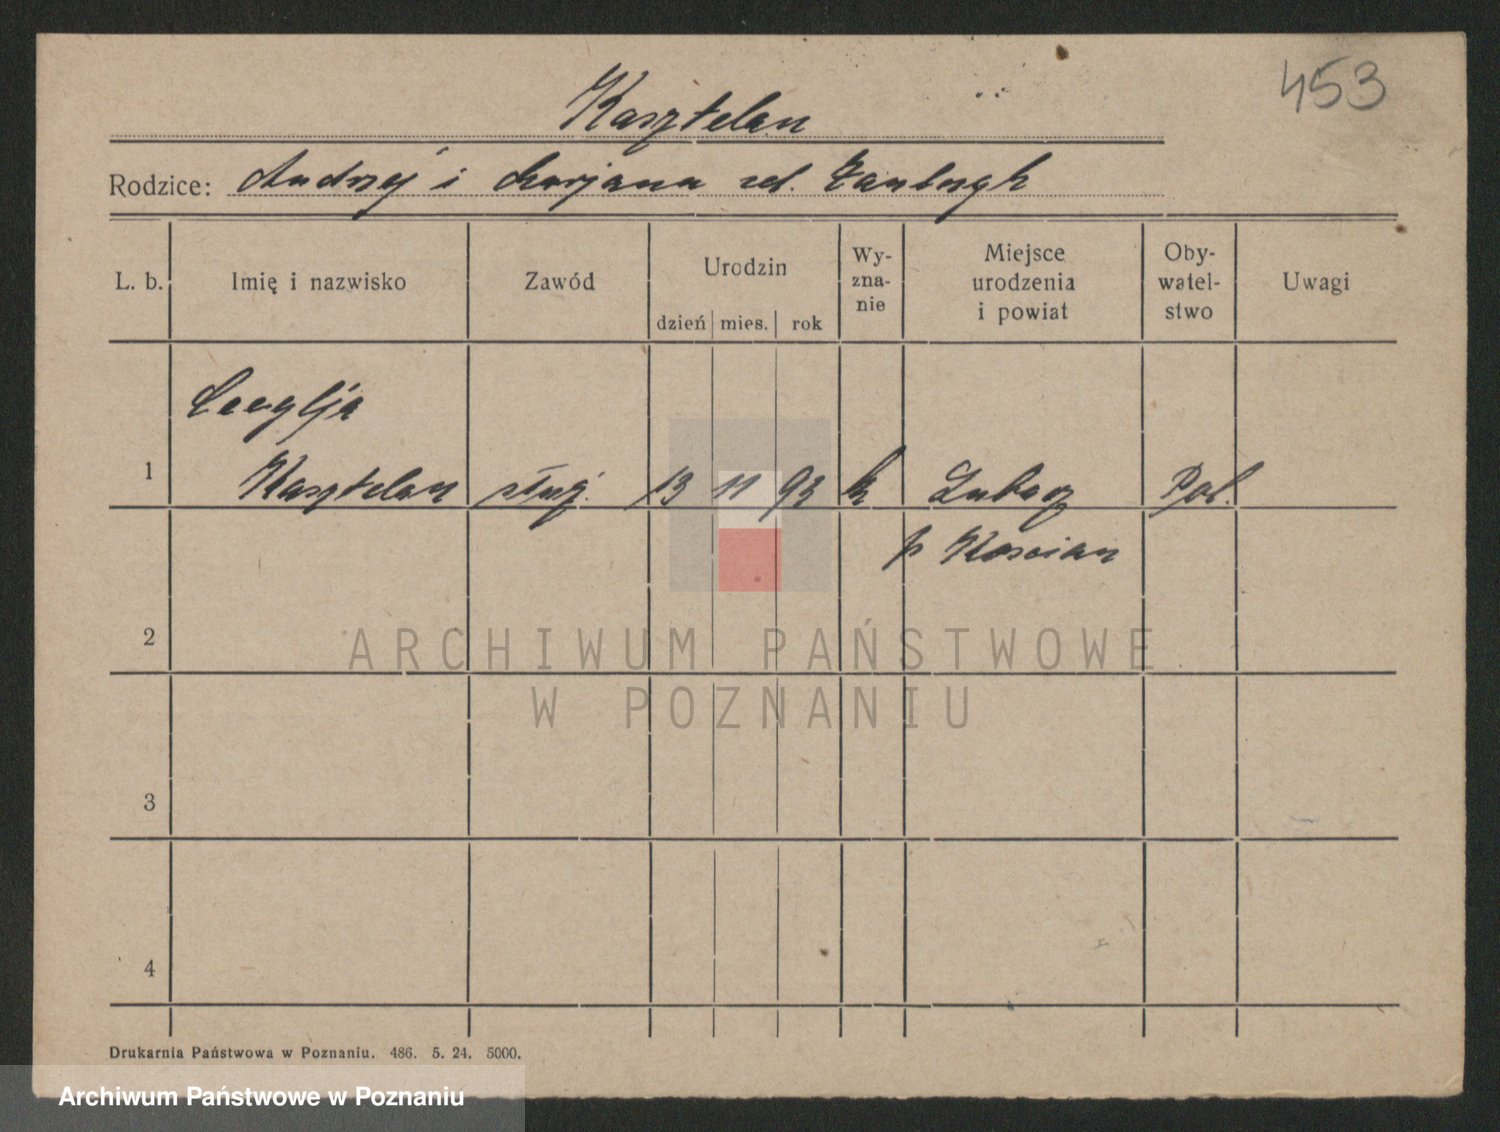 453
Kasztelan
Rodzice: Andrzej i Marjana zd.
L. b. Imię i nazwisko Zawód Urodzin dzień mies. rok Wy-zna-nie Miejsce urodzenia i powiat Oby-watel-stwo Uwagi
Cecylja
1 Kasztelan służ. 13 11 93 k Pol.
p Kościan
2
ARCHIWUM PAŃSTWOWE
W POZNANIU
3
4
Drukarnia Państwowa w Poznaniu. 486. 5. 24. 5000.
Archiwum Państwowe w Poznaniu